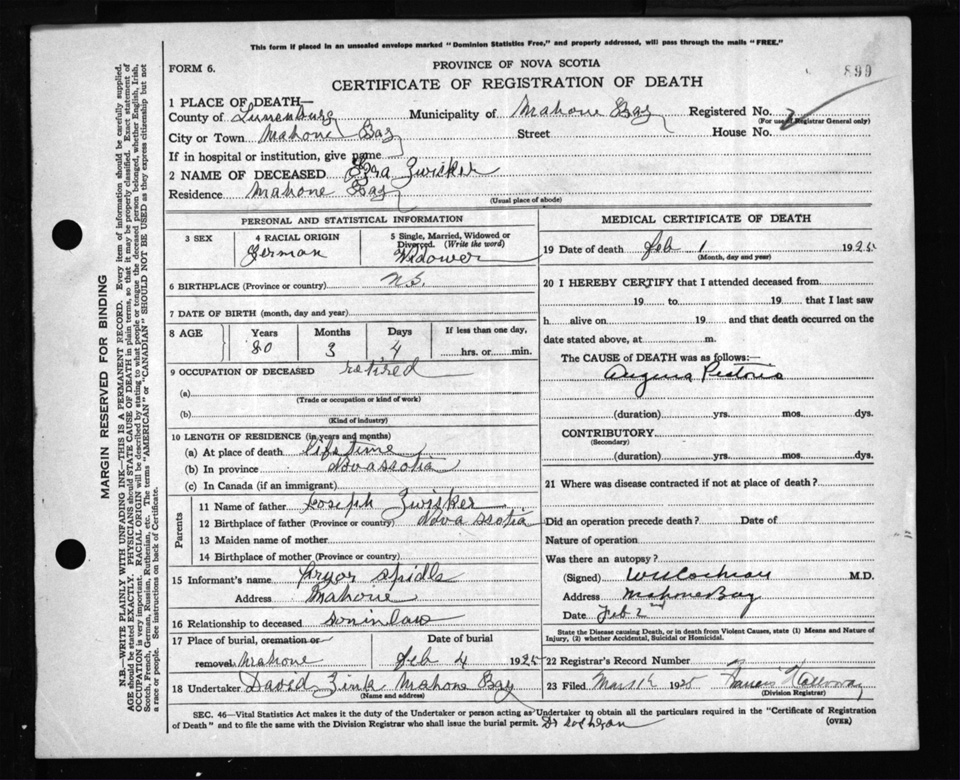 This form if placed in an unsealed envelope marked "Dominion Statistics Free," and properly addressed, will pass through the mails "FREE."
FORM 6.
PROVINCE OF NOVA SCOTIA
899
CERTIFICATE OF REGISTRATION OF DEATH
1 PLACE OF DEATH—
County of Lunenburg Municipality of Mahone Bay Registered No. 2
(For use of Registrar General only)
City or Town Mahone Bay Street House No.
If in hospital or institution, give name
2 NAME OF DECEASED Ezra Zwisker
Residence Mahone Bay
(Usual place of abode)
PERSONAL AND STATISTICAL INFORMATION
3 SEX
4 RACIAL ORIGIN German
5 Single, Married, Widowed or Divorced. (Write the word) Widower
6 BIRTHPLACE (Province or country) N.S.
7 DATE OF BIRTH (month, day and year)
8 AGE Years Months Days If less than one day,
80 3 4 hrs. or min.
9 OCCUPATION OF DECEASED retired
(a)
(Trade or occupation or kind of work)
(b)
(Kind of industry)
10 LENGTH OF RESIDENCE (in years and months)
(a) At place of death life time
(b) In province Nova scotia
(c) In Canada (if an immigrant)
Parents
11 Name of father Joseph Zwisker
12 Birthplace of father (Province or country) Nova scotia
13 Maiden name of mother
14 Birthplace of mother (Province or country)
15 Informant's name Spidle
Address Mahone
16 Relationship to deceased son in law
17 Place of burial, cremation or Date of burial
removal Mahone Feb 4 1925
18 Undertaker David Zink Mahone Bay
(Name and address)
MEDICAL CERTIFICATE OF DEATH
19 Date of death Feb 1 1925
(Month, day and year)
20 I HEREBY CERTIFY that I attended deceased from
19 to 19 that I last saw
h alive on 19 and that death occurred on the
date stated above, at m.
The CAUSE of DEATH was as follows:—
Angina Pectoris
(duration) yrs. mos. dys.
CONTRIBUTORY
(Secondary)
(duration) yrs. mos. dys.
21 Where was disease contracted if not at place of death?
Did an operation precede death? Date of
Nature of operation
Was there an autopsy?
(Signed) Cochran M.D.
Address Mahone Bay
Date Feb 2nd
State the Disease causing Death, or in death from Violent Causes, state (1) Means and Nature of
Injury, (2) whether Accidental, Suicidal or Homicidal.
22 Registrar's Record Number
23 Filed Mar 11th 1925
(Division Registrar)
SEC. 46—Vital Statistics Act makes it the duty of the Undertaker or person acting as Undertaker to obtain all the particulars required in the "Certificate of Registration
of Death" and to file the same with the Division Registrar who shall issue the burial permit. Dr Cochran
(OVER)
MARGIN RESERVED FOR BINDING
N.B.—WRITE PLAINLY WITH UNFADING INK—THIS IS A PERMANENT RECORD. Every item of information should be carefully supplied.
AGE should be stated EXACTLY. PHYSICIANS should STATE CAUSE OF DEATH in plain terms, so that it may be properly classified. Exact statement of
OCCUPATION is very important. RACIAL ORIGIN will be described by stating to what people or tongue the deceased person belonged, whether English, Irish,
Scotch, French, German, Russian, Ruthenian, etc. The terms "AMERICAN" or "CANADIAN" SHOULD NOT BE USED as they express citizenship but not
a race or people. See instructions on back of Certificate.